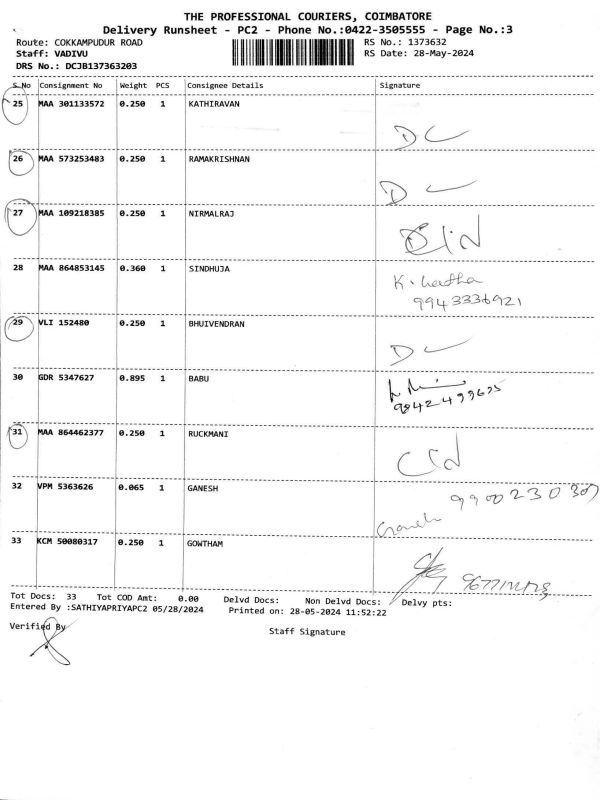 THE PROFESSIONAL COURIERS, COIMBATORE
Delivery Runsheet - PC2 - Phone No.:0422-3505555 - Page No.:3
Route: COKKAMPUDUR ROAD RS No.: 1373632
Staff: VADIVU RS Date: 28-May-2024
DRS No.: DCJB137363203
S No Consignment No Weight PCS Consignee Details Signature
25 MAA 301133572 0.250 1 KATHIRAVAN
DL
26 MAA 573253483 0.250 1 RAMAKRISHNAN
DL
27 MAA 109218385 0.250 1 NIRMALRAJ
28 MAA 864853145 0.360 1 SINDHUJA
9943336921
29 VLI 152480 0.250 1 BHUIVENDRAN
DL
30 GDR 5347627 0.895 1 BABU
31 MAA 864462377 0.250 1 RUCKMANI
32 VPM 5363626 0.065 1 GANESH
Ganesh
33 KCM 50080317 0.250 1 GOWTHAM
Tot Docs: 33 Tot COD Amt: 0.00 Delvd Docs: Non Delvd Docs: Delvy pts:
Entered By :SATHIYAPRIYAPC2 05/28/2024 Printed on: 28-05-2024 11:52:22
Verified By Staff Signature